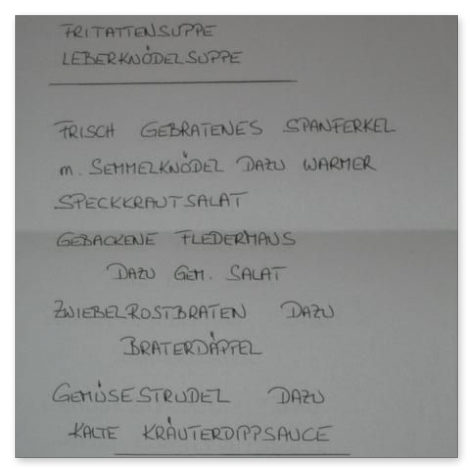 FRITATTENSUPPE
LEBERKNÖDELSUPPE
FRISCH GEBRATENES SPANFERKEL
m. SEMMELKNÖDEL DAZU WARMER
SPECKKRAUTSALAT
GEBACKENE FLEDERMAUS
DAZU GEM. SALAT
ZWIEBELROSTBRATEN DAZU
BRATERDÄPFEL
GEMÜSESTRUDEL DAZU
KALTE KRÄUTERDIPPSAUCE